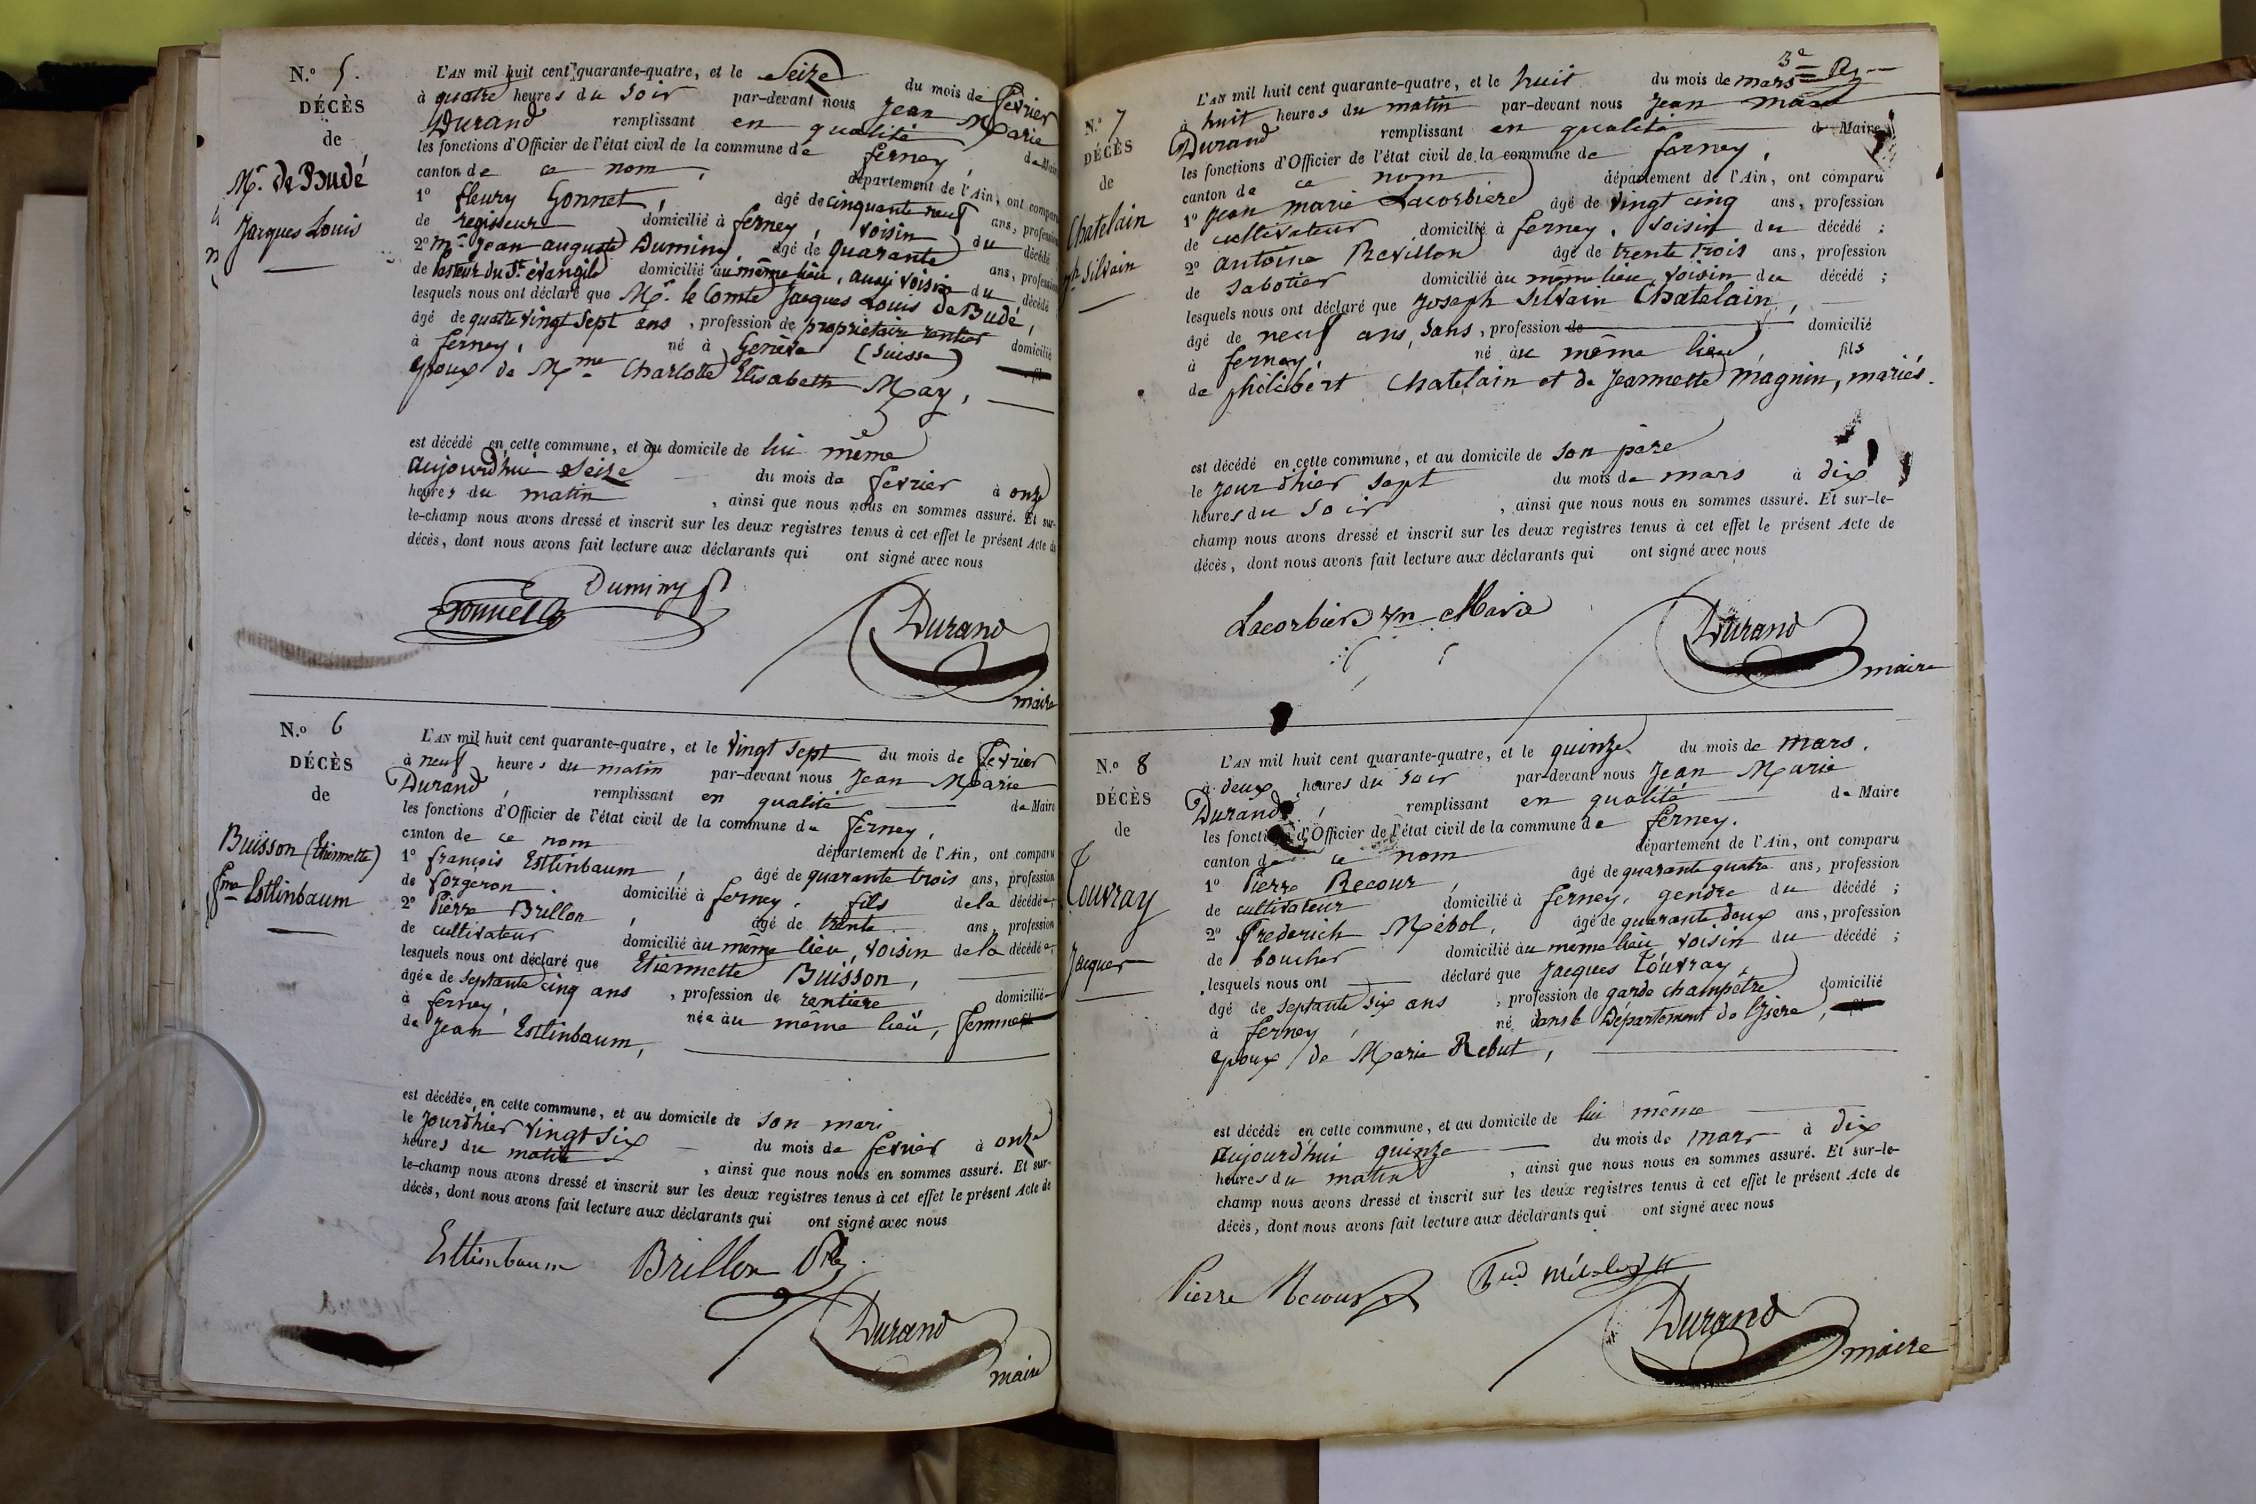 N.º 5.
DÉCÈS
de
Mr. de Budé
Jacques Louis
L'AN mil huit cent quarante-quatre, et le Seize du mois de fevrier
à quatre heures du soir par-devant nous Jean Marie
Durand remplissant en qualité de Maire
les fonctions d'Officier de l'état civil de la commune de ferney,
canton de ce nom, département de l'Ain, ont comparu
1º fleury Gonnet, âgé de cinquante neuf ans, profession
de regisseur domicilié à ferney, voisin du décédé
2º mr. Jean auguste Duminy âgé de quarante ans, profession
de Pasteur du St. évangile domicilié au même lieu, aussi voisin du décédé
lesquels nous ont déclaré que Mr. le Comte Jacques Louis de Budé,
âgé de quatre vingt sept ans, profession de propriétaire rentier domicilié
à ferney, né à Genève (Suisse)
epoux de Mme Charlotte Elisabeth May,
est décédé en cette commune, et au domicile de lui même
aujourd'hui seize du mois de fevrier à onze
heures du matin, ainsi que nous nous en sommes assuré. Et sur-
le-champ nous avons dressé et inscrit sur les deux registres tenus à cet effet le présent Acte de
décès, dont nous avons fait lecture aux déclarants qui ont signé avec nous
Duminy p
Gonnet
Durand
maire
N.º 6
DÉCÈS
de
Buisson (Etiennette)
fme Estlinbaum
L'AN mil huit cent quarante-quatre, et le vingt sept du mois de fevrier
à neuf heures du matin par-devant nous Jean Marie
Durand, remplissant en qualité de Maire
les fonctions d'Officier de l'état civil de la commune de ferney,
canton de ce nom département de l'Ain, ont comparu
1º françois Estlinbaum, âgé de quarante trois ans, profession
de forgeron. domicilié à ferney, fils de la décédée;
2º Pierre Brillon, âgé de trente ans, profession
de cultivateur domicilié au même lieu, voisin de la décédée;
lesquels nous ont déclaré que Etiennette Buisson,
âgée de septante cinq ans, profession de rentière domicilié
à ferney, née au même lieu, femme
de Jean Estlinbaum,
est décédée en cette commune, et au domicile de son mari
le jour d'hier vingt six du mois de fevrier à onze
heures du matin, ainsi que nous nous en sommes assuré. Et sur-
le-champ nous avons dressé et inscrit sur les deux registres tenus à cet effet le présent Acte de
décès, dont nous avons fait lecture aux déclarants qui ont signé avec nous
Estlinbaum Brillon
Durand
maire
3e
N.º 7
DÉCÈS
de
Chatelain
ph Silvain
L'AN mil huit cent quarante-quatre, et le huit du mois de mars
à huit heures du matin par-devant nous Jean marie
Durand remplissant en qualité de Maire
les fonctions d'Officier de l'état civil de la commune de ferney,
canton de ce nom département de l'Ain, ont comparu
1º Jean marie Lacorbière âgé de vingt cinq ans, profession
de cultivateur domicilié à ferney, voisin du décédé;
2º antoine Revillon âgé de trente trois ans, profession
de sabotier domicilié au même lieu, voisin du décédé;
lesquels nous ont déclaré que Joseph Silvain Chatelain,
âgé de neuf ans, sans, profession de domicilié
à ferney, né au même lieu, fils
de philibert Chatelain et de Jeannette Magnin, mariés.
est décédé en cette commune, et au domicile de son père
le jour d'hier sept du mois de mars à dix
heures du soir, ainsi que nous nous en sommes assuré. Et sur-le-
champ nous avons dressé et inscrit sur les deux registres tenus à cet effet le présent Acte de
décès, dont nous avons fait lecture aux déclarants qui ont signé avec nous
Lacorbiere Marie
Durand
maire
N.º 8
DÉCÈS
de
Touvray
Jacques
L'AN mil huit cent quarante-quatre, et le quinze du mois de mars.
à deux heures du soir par-devant nous Jean Marie
Durand, remplissant en qualité de Maire
les fonctions d'Officier de l'état civil de la commune de ferney.
canton de ce nom département de l'Ain, ont comparu
1º Pierre Recour, âgé de quarante quatre ans, profession
de cultivateur domicilié à ferney, gendre du décédé;
2º Frederich Mébol, âgé de quarante deux ans, profession
de boucher domicilié au même lieu voisin du décédé;
lesquels nous ont déclaré que Jacques Touvray,
âgé de septante six ans, profession de garde champetre domicilié
à ferney, né dans le Département de l'Isère,
epoux de Marie Rebut,
est décédé en cette commune, et au domicile de lui même
aujourd'hui quinze du mois de mars à dix
heures du matin, ainsi que nous nous en sommes assuré. Et sur-le-
champ nous avons dressé et inscrit sur les deux registres tenus à cet effet le présent Acte de
décès, dont nous avons fait lecture aux déclarants qui ont signé avec nous
Pierre Recour
Durand
maire